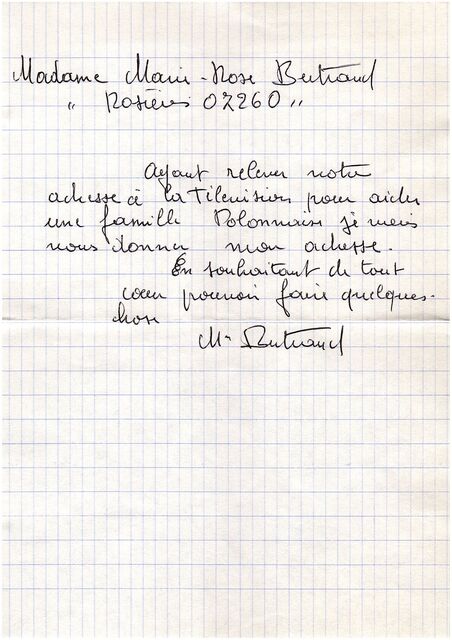 Madame Marie-Rose Bertrand
" Rosières 07260 "
Ayant relever votre
adresse à la Télévision pour aider
une famille Polonnaise je viens
vous donner mon adresse.
En souhaitant de tout
cœur pouvoir faire quelques-
chose
Me Bertrand